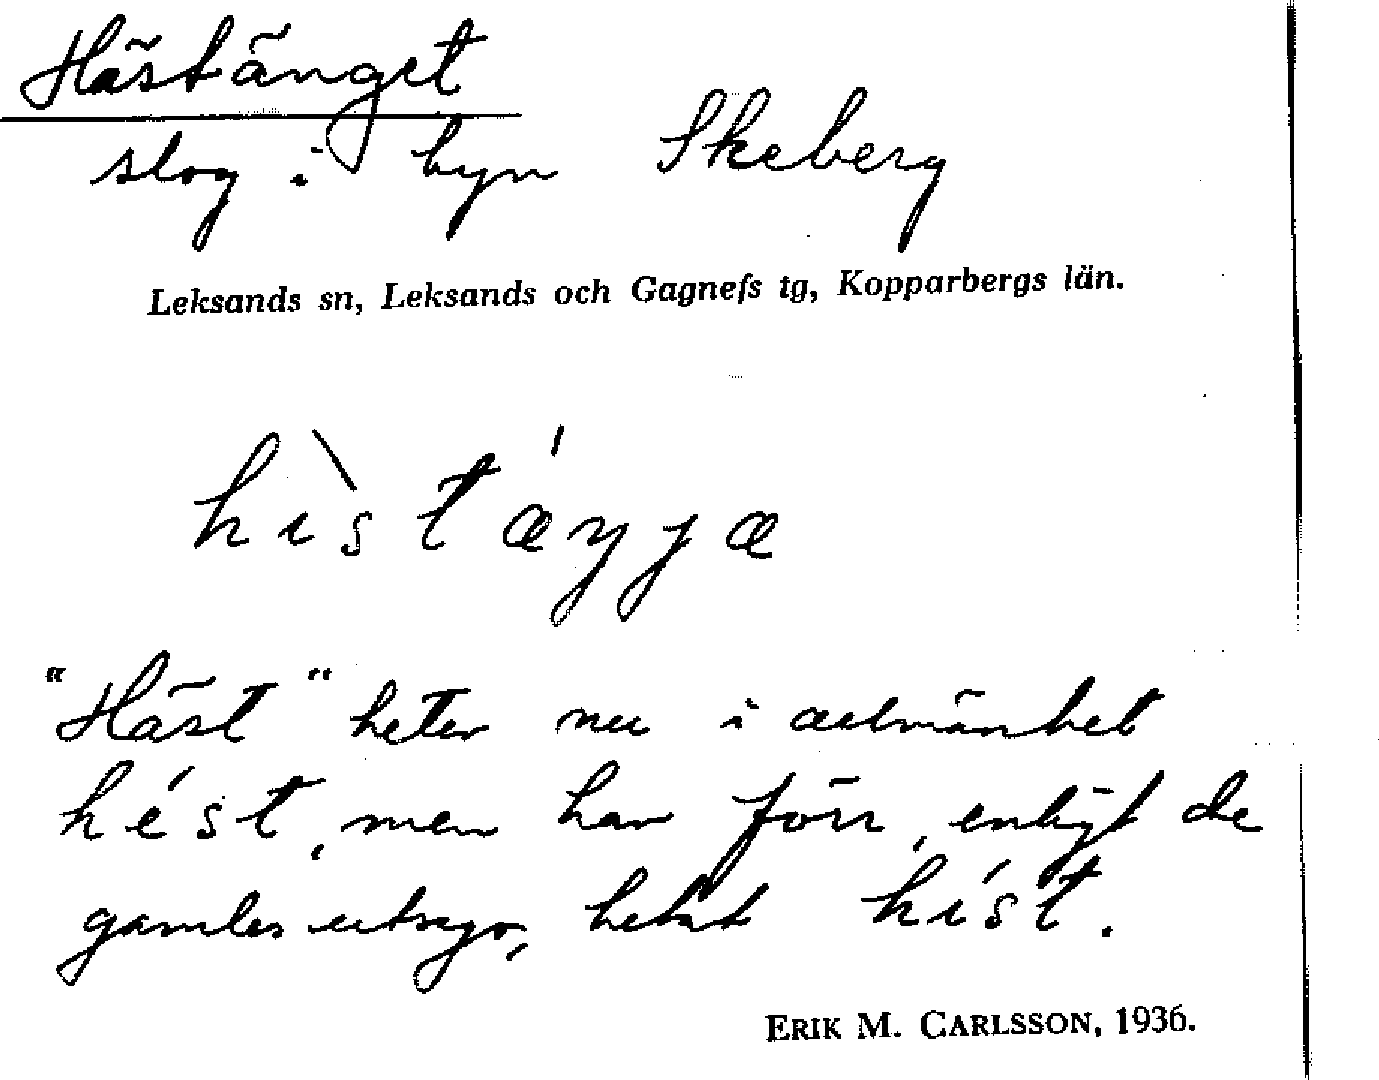 Hästänget
slog i byn Skeberg
Leksands sn, Leksands och Gagnefs tg, Kopparbergs län.
hìstǽŋɟæ
"Häst" heter nu i allmänhet
hést, men har förr, enligt de
gamles utsago, hetat híst.
ERIK M. CARLSSON, 1936.